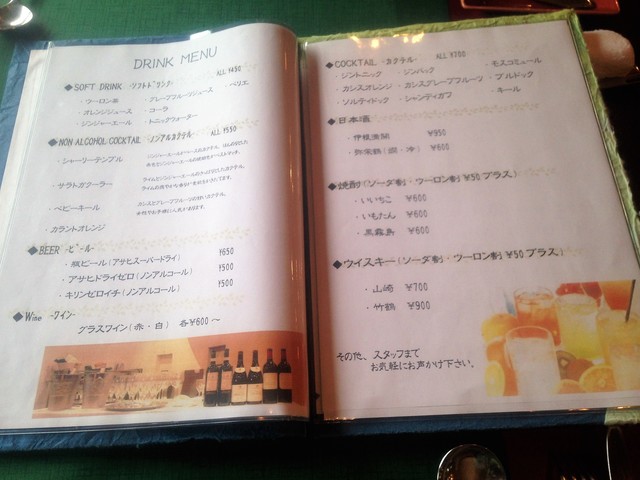 DRINK MENU
◆SOFT DRINK -ソフトドリンク- ALL ¥450
・ウーロン茶 ・グレープフルーツジュース ・ペリエ
・オレンジジュース ・コーラ
・ジンジャーエール ・トニックウォーター
◆NON ALCOHOL COCKTAIL -ノンアルカクテル- ALL ¥550
・シャーリーテンプル
・サラトガクーラー
・ベビーキール
・カラントオレンジ
◆BEER -ビール-
・瓶ビール(アサヒスーパードライ) ¥650
・アサヒドライゼロ(ノンアルコール) ¥500
・キリンゼロイチ(ノンアルコール) ¥500
◆Wine -ワイン-
グラスワイン(赤・白) 各¥600～
◆COCKTAIL -カクテル- ALL ¥700
・ジントニック ・ジンバック ・モスコミュール
・カシスオレンジ ・カシスグレープフルーツ ・ブルドック
・ソルティドック ・シャンディガフ ・キール
◆日本酒
¥950
¥600
◆焼酎(ソーダ割・ウーロン割 ¥50プラス)
・いいちこ ¥600
・いもたん ¥600
・黒霧島 ¥600
◆ウイスキー(ソーダ割・ウーロン割 ¥50プラス)
・山崎 ¥700
・竹鶴 ¥900
そのた、スタッフまで
お気軽にお声かけ下さい。